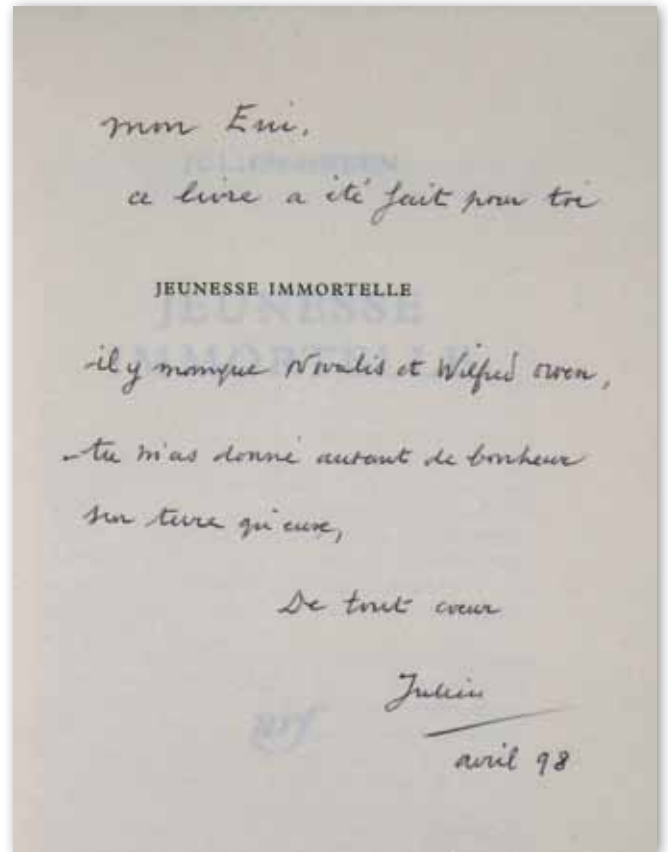 mon Eric,
ce livre a été fait pour toi
JEUNESSE IMMORTELLE
il y manque Novalis et Wilfred Owen,
tu m'as donné autant de bonheur
sur terre qu'eux,
De tout coeur
Julien
avril 98